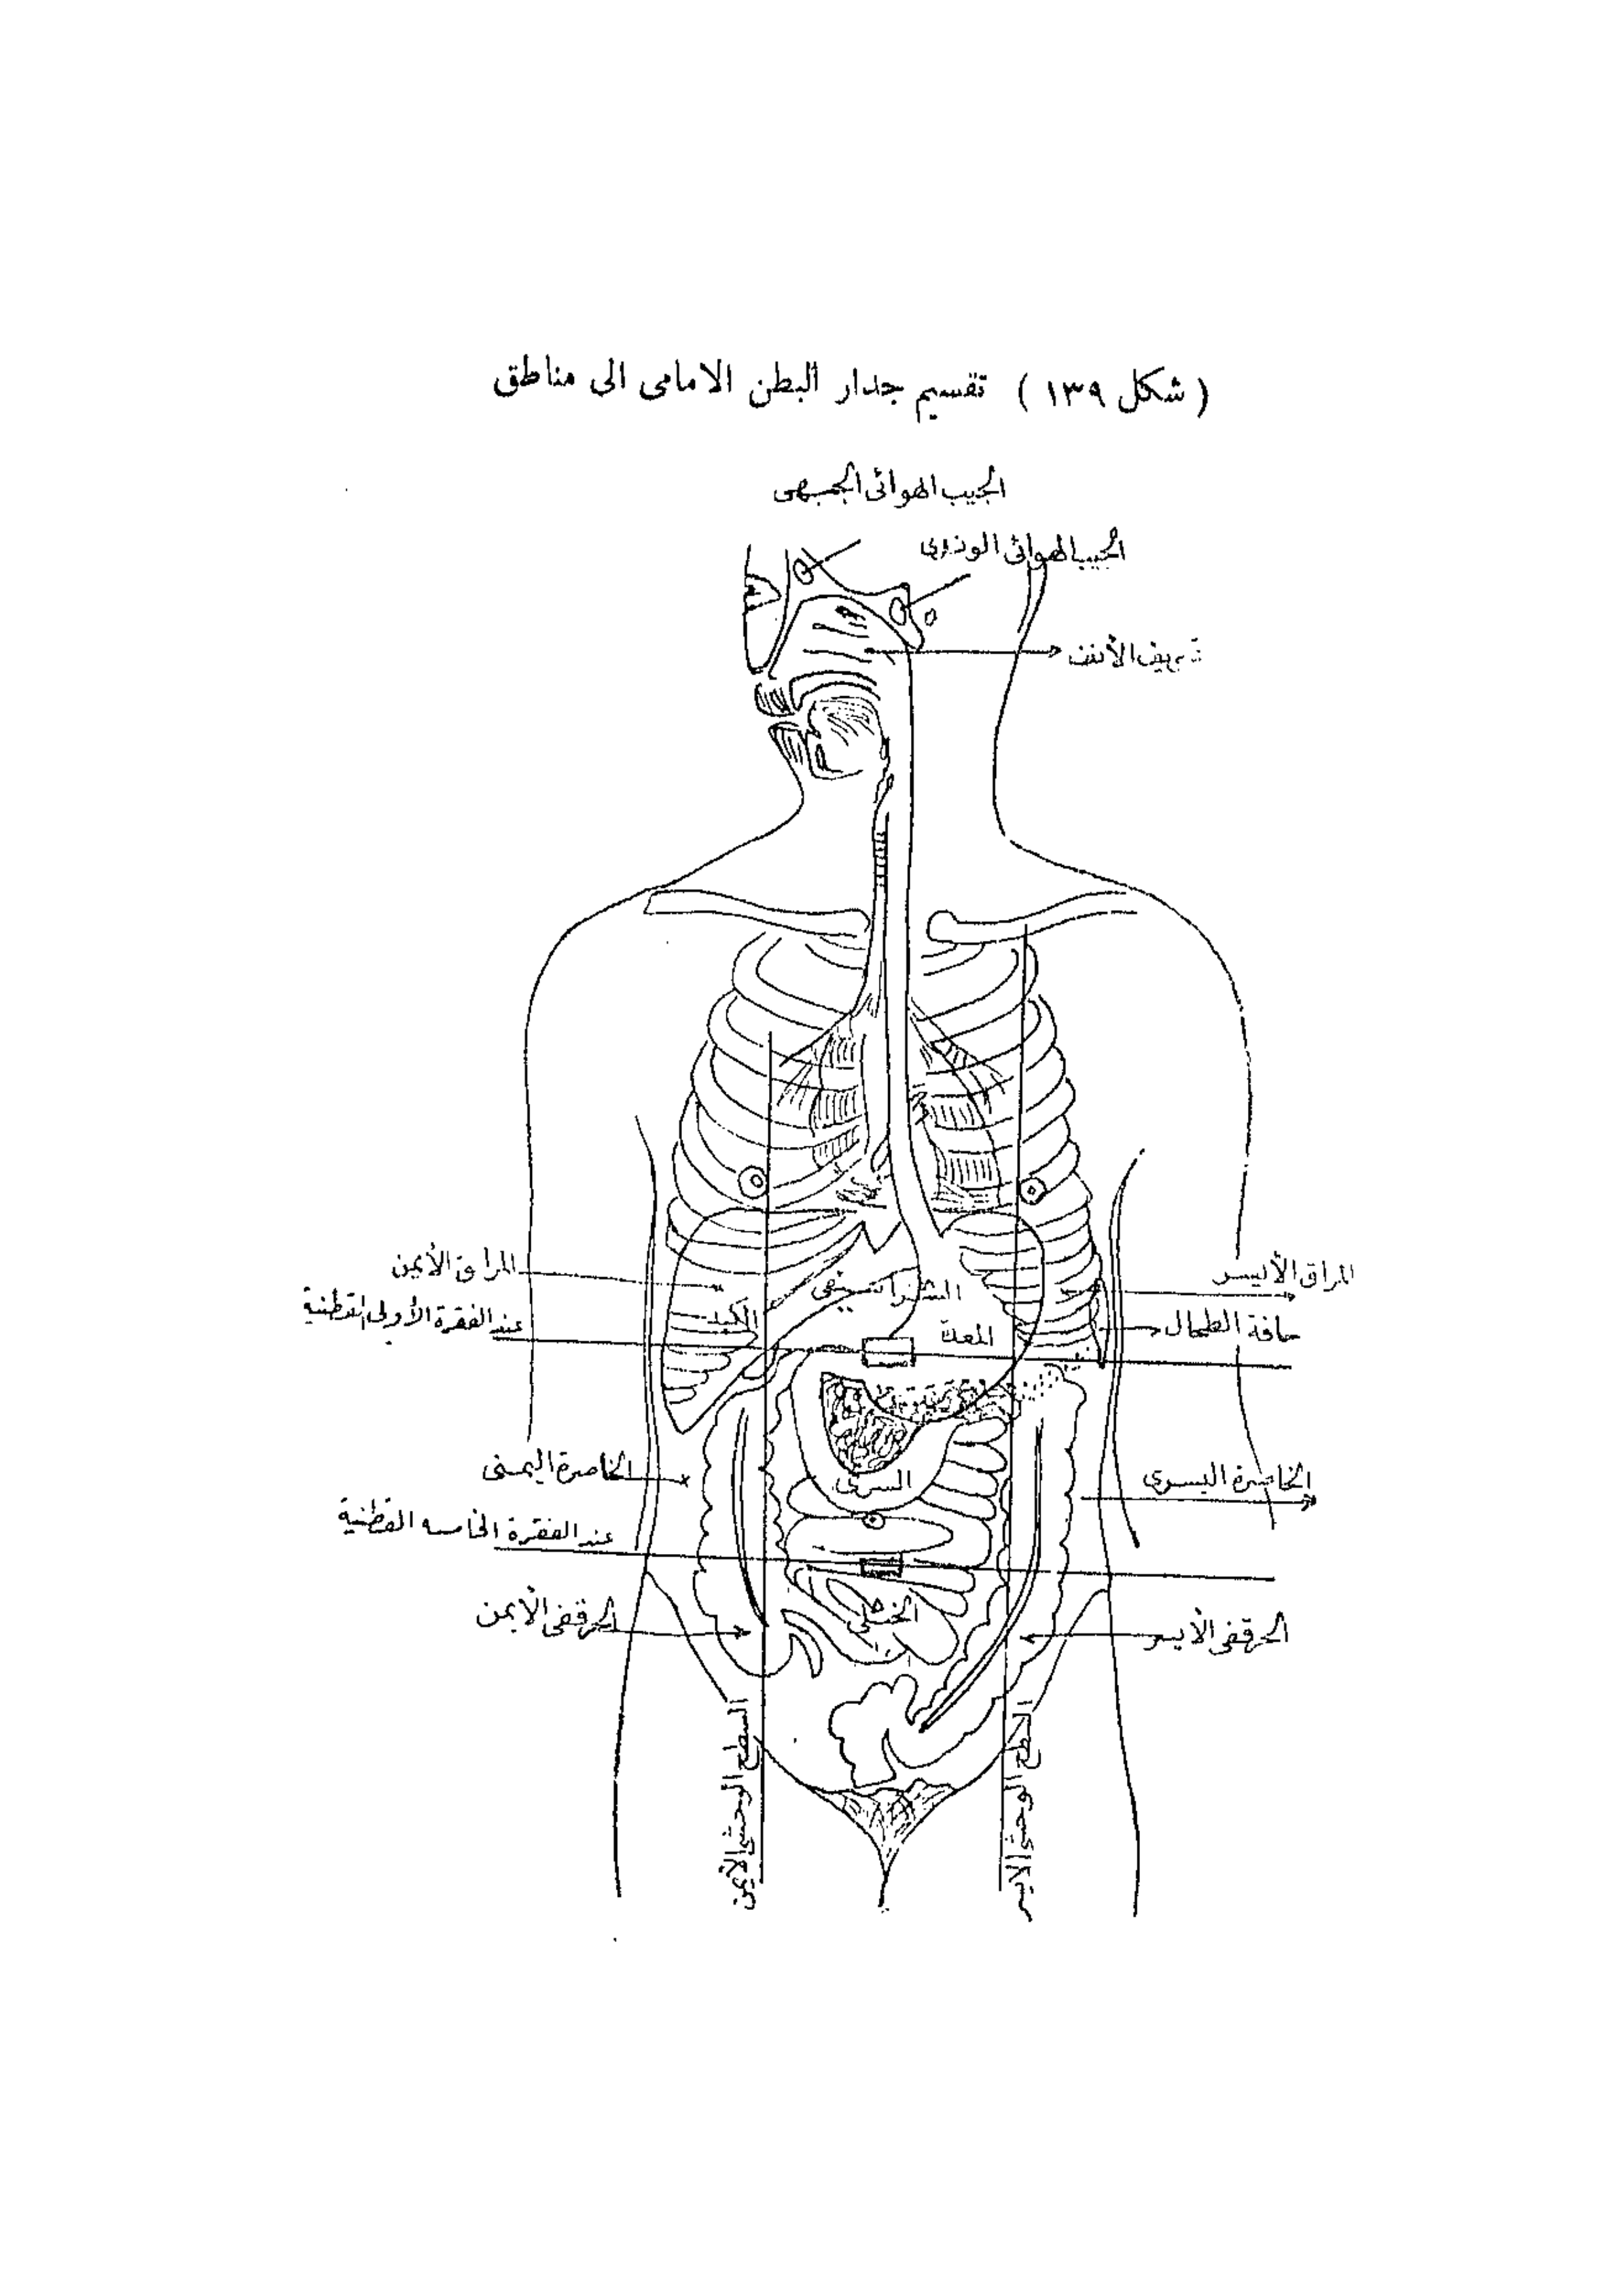 ( شكل ١٣٩ ) تقسيم جدار البطن الامامى الى مناطق
الجيب الهوائى الجبهى
الجيب الهوائى الوتدى
تجويف الأنف
المراق الأيمن
المراق الأيسر
الشراسيفى
عند الفقرة الأولى القطنية
الكبد
المعدة
حافة الطحال
الخاصرة اليمنى
السرى
الخاصرة اليسرى
عند الفقرة الخامسه القطنية
الحرقفى الأيمن
الخثلى
الحرقفى الأيسر
السطح الوحشى الأيمن
السطح الوحشى الأيسر